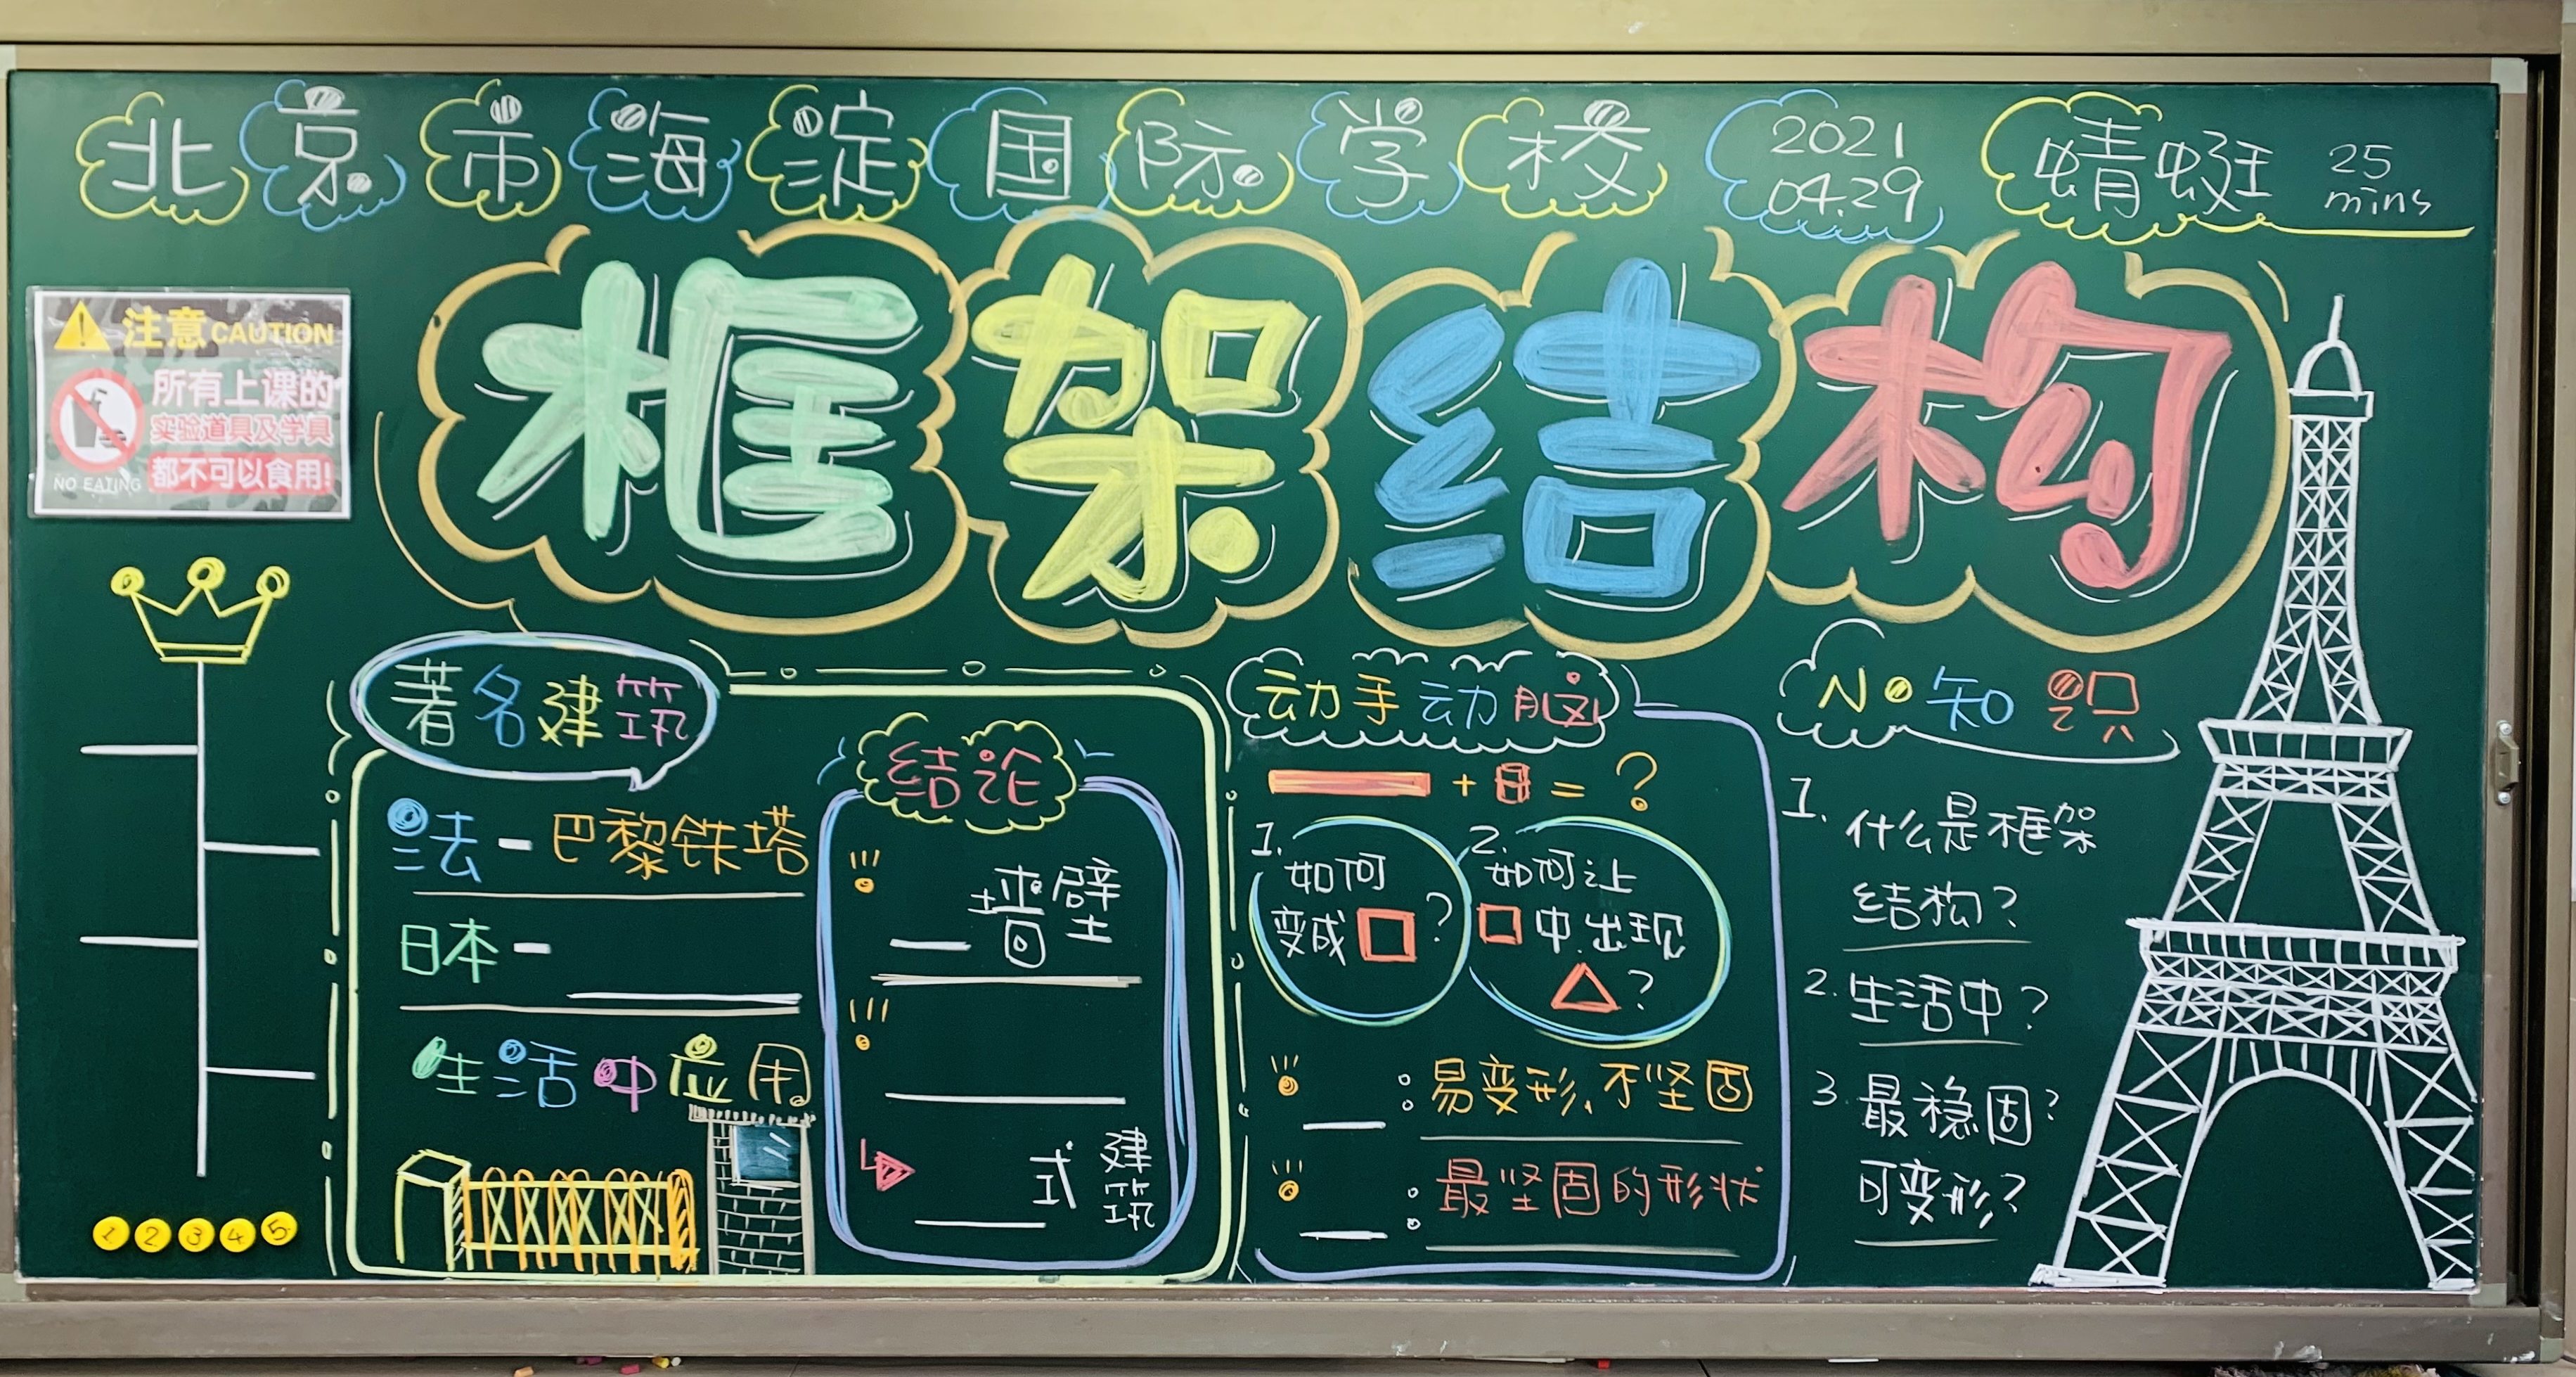 北京市海淀国际学校 2021 04.29 蜻蜓 25 mins
框架结构
注意 CAUTION
所有上课的
实验道具及学具
都不可以食用!
NO EATING
1 2 3 4 5
著名建筑
法-巴黎铁塔
日本-
生活中应用
结论
墙壁
式建筑
动手动脑
+ = ?
1. 如何
变成 ?
2. 如何让
中出现
?
: 易变形、不坚固
: 最坚固的形状
小知识
1. 什么是框架
结构?
2. 生活中?
3 最稳固?
可变形?